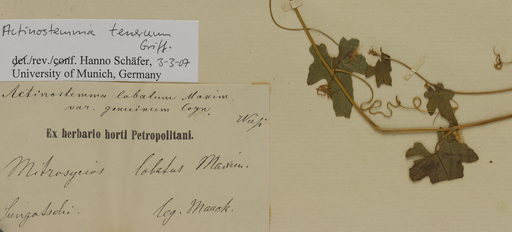 Actinostemma tenerum
Griff.
det./rev./conf. Hanno Schäfer, 3-3-07
University of Munich, Germany
Actinostemma lobatum Maxim.
var. genuinum Cogn.
Ex herbario horti Petropolitani.
Mitrosycios lobatus Maxim.
leg. Maack.